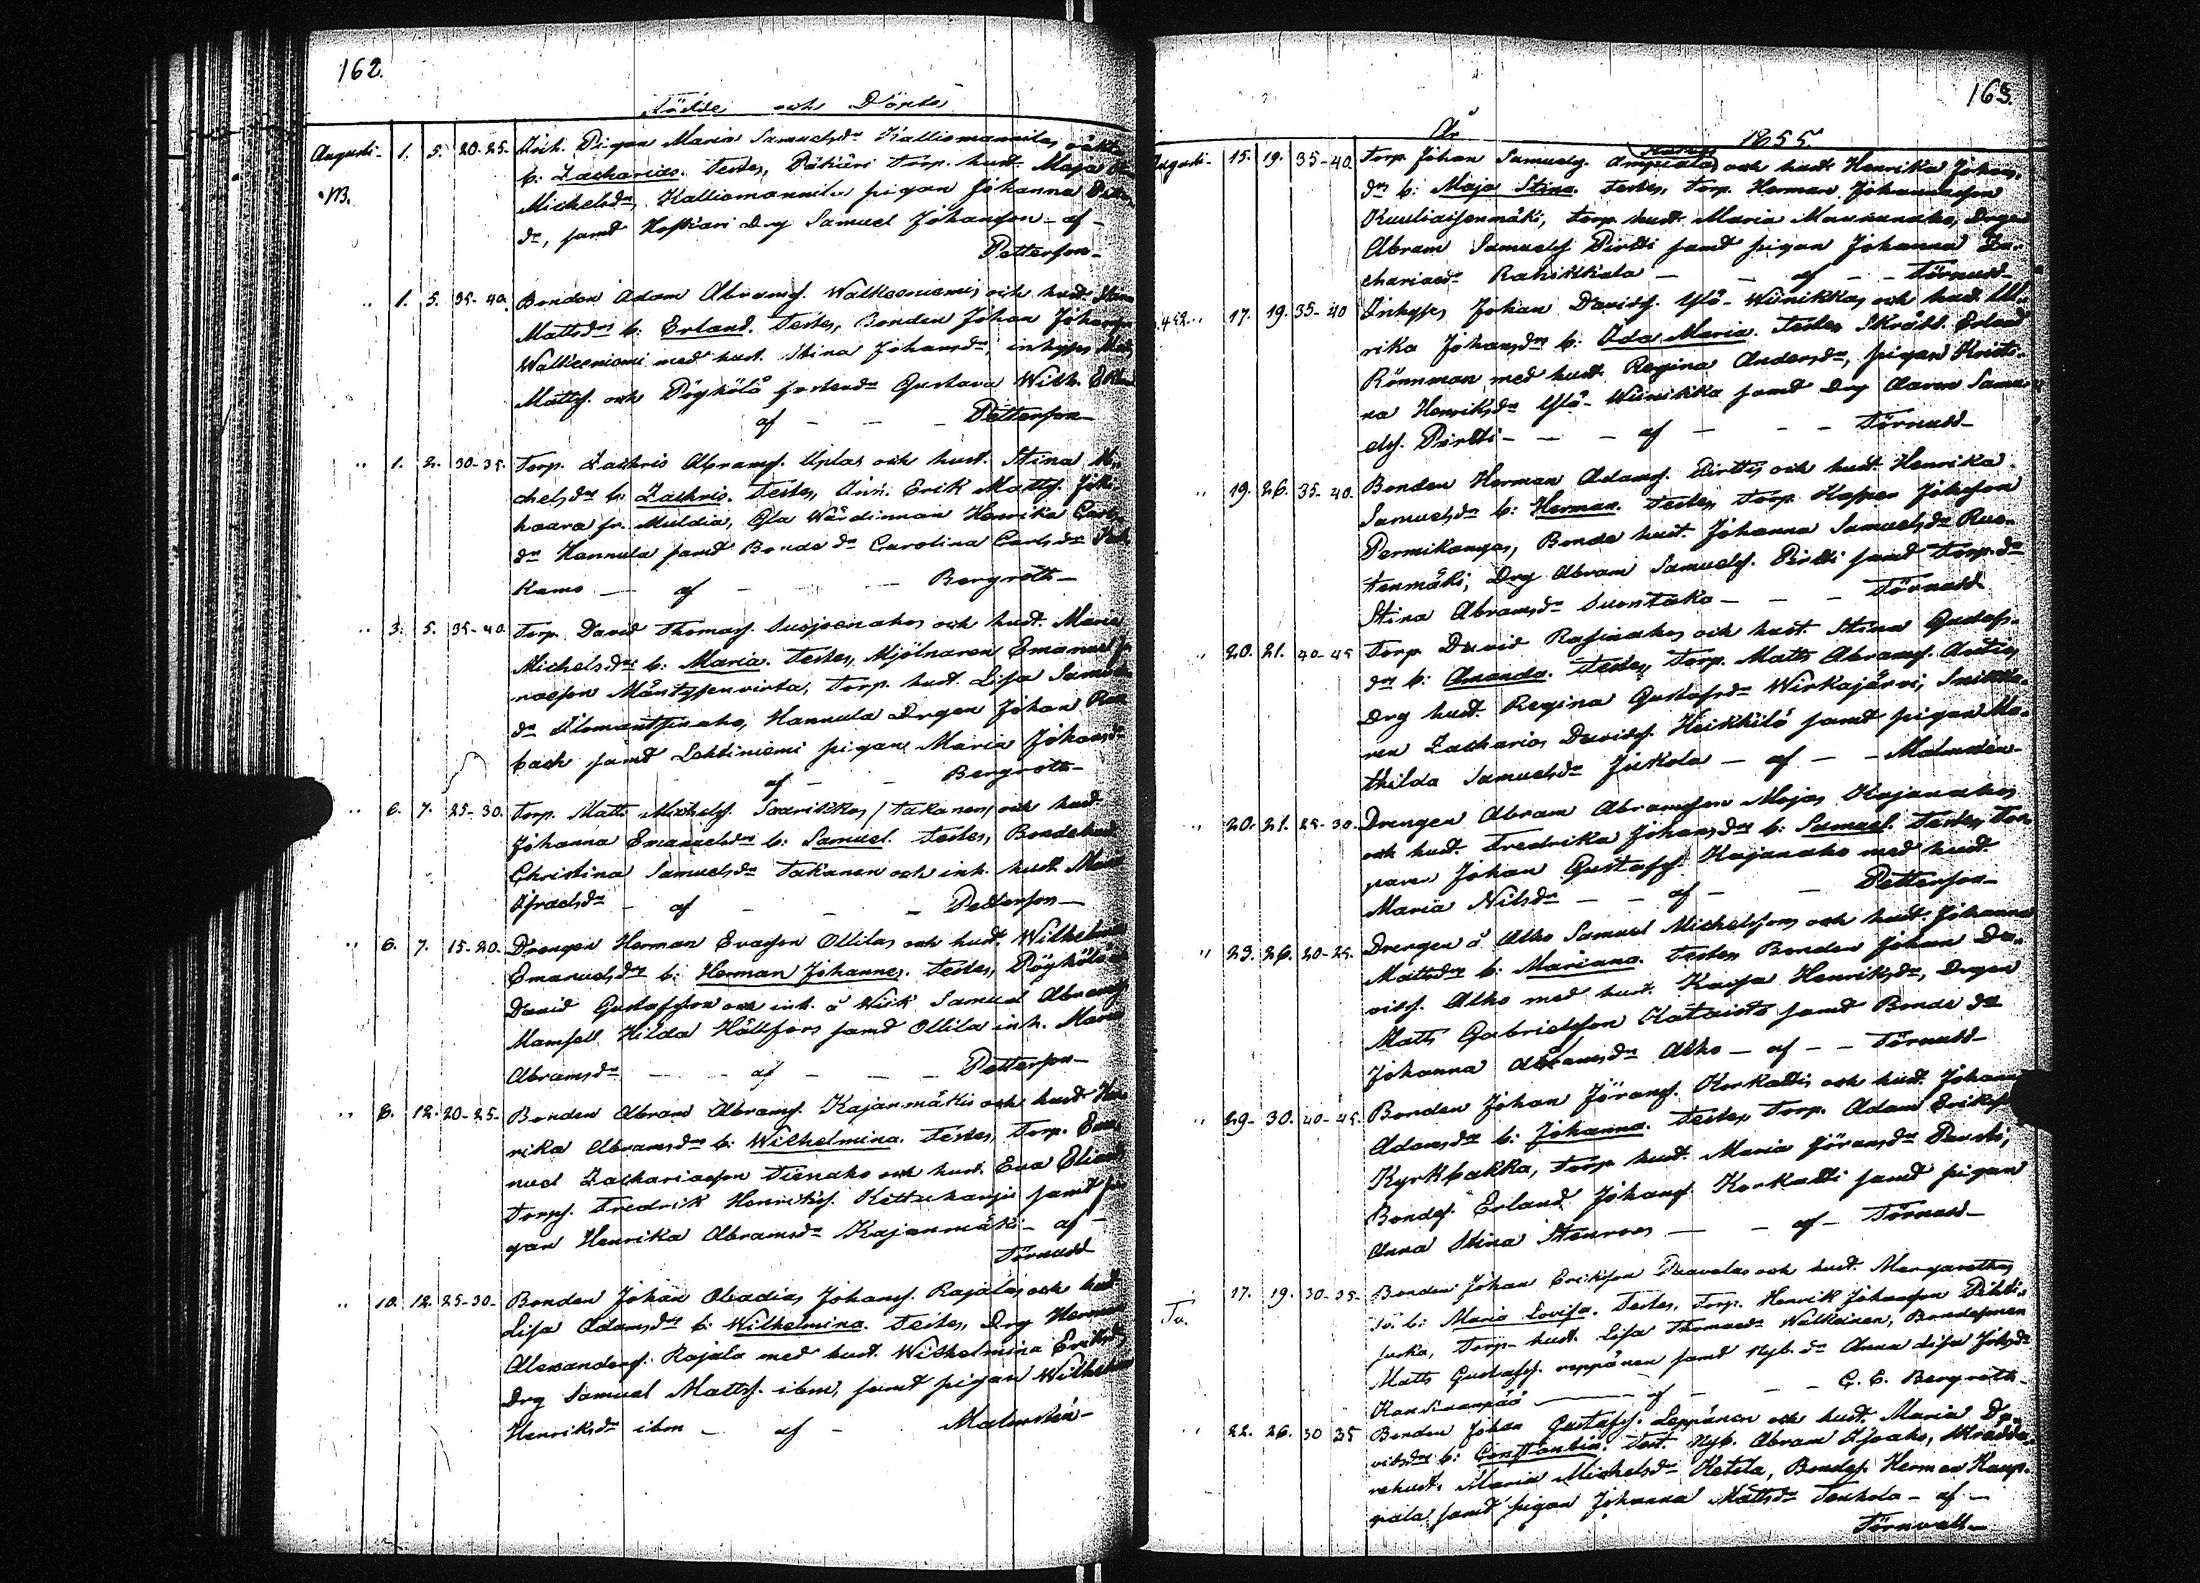 162.
Födde och Döpte
Augusti 1. 5. 20-25. Pigan Maria Samuelsdr Kalliomannilas oäkta
b: Zacharias. Testes, Torp. hust. Maja
Michelsdr, Kalliomannila pigan Johanna
dr, samt Drg Samuel Johansson - af -
Petterson -
" 1. 5. 35-40. Bonden Adam Abramss. Walkeeniemis och hust.
Mattsdrs b: Erland. Testes, Bonden Johan
Walkeeniemi med hust. Stina Johansdr, inhyses
Mattss. och Pöyhölä Gustava Wilh.
af - - - Petterson -
" 1. 2. 30-35. Torp. Zachris Abramss. Uplas och hust. Stina Mi-
chelsdrs b: Zachris. Testes, Erik Mattss.
haara fr. Muldia, Wärdinnan Henrika Carls-
dr Hannula samt Bonde dr Carolina Carlsdr
Kamo - af - - Bergroth -
" 3. 5. 35-40. Torp. David Thomass. och hust. Maria
Michelsdrs b: Maria. Testes, Mjölnaren Emanuel
Mäntysenvirta, Torp. hust. Lisa
dr Hannula Drgen Johan
back samt Lehtiniemi pigan Maria Johansdr
af - - Bergroth -
" 6. 7. 25-30. Torp. Matts Michelss. Saarikkos / Takanen / och hust.
Johanna Emanuelsdrs b: Samuel. Testes, Bondehust.
Christina Samuelsdr Takanen och inh. hust. Maria
Israelsdr - af - - - Petterson -
" 6. 7. 15-20. Drengen Herman Evasson Ollilas och hust. Wilhelmina
Emanuelsdrs b: Herman Johannes. Testes, Pöyhölä
David Gustafsson och inh. å Wiik Samuel Abramss.
Mamsell Hilda Hällfors samt Ollila inh. Maria
Abramsdr - - - af - - - Petterson -
" 8. 12. 20-25. Bonden Abram Abramss. Kajanmäkis och hust. Hen-
rika Abramsdrs b: Wilhelmina. Testes, Torp. Ema-
nuel Zachariasson Tienaho och hust. Eva
Torps. Fredrik Henrikss. Kettukangas samt pi-
gan Henrika Abramsdr Kajanmäki - af -
Törnudd
" 10. 12. 25-30. Bonden Johan Obadias Johanss. Rajalas och hust.
Lisa Adamsdrs b: Wilhelmina. Testes, Drg Herman
Alexanders. Rajala med hust. Wilhelmina Eriksdr
Drg Samuel Mattss. ibm, samt pigan Wilhelmina
Henriksdr ibm - af - Malmstén -
163.
År 1855.
Augusti 15. 19. 35-40. Torp. Johan Samuelss. Ampialas och hust. Henrika Johans-
drs b: Maja Stina. Testes, Torp. Herman Johannesson
Kuuliaisenmäki, Torp. hust. Maria Maununaho, Drgen
Abram Samuelss. Pirtti samt pigan Johanna Za-
chariasdr Rahikkala - - af - - Törnudd -
" 17. 19. 35-40 Inhyses Johan Davidss. Ylä-Wiinikkas och hust. Ul-
rika Johansdrs b: Ada Maria. Testes Skrädd. Erland
Rönnman med hust. Regina Andersdr, pigan Kristi-
na Henriksdr Ylä-Wiinikka samt Drg Aaron Samu-
elss. Pirtti - - - af - - - Törnudd -
" 19. 26. 35-40. Bonden Herman Adamss. Pirttis och hust. Henrika
Samuelsdrs b: Herman. Testes, Torp. Kasper Johansson
Permikangas, Bonde hust. Johanna Samuelsdr Ruo-
tenmäki, Drg Abram Samuelss. Pirtti samt Torp. dr
Stina Abramsdr Suontaka - - - Törnudd
" 20. 21. 40-45 Torp. David Rasinahos och hust. Stina Gustafs-
drs b: Amanda. Testes, Torp. Matts Abramss. Autio,
Drg hust. Regina Gustafsdr Wirkajärvi, Snikka-
ren Zacharias Davidss. Heikkilä samt pigan Ma-
thilda Samuelsdr Jukola - af - - Malmstén -
" 20. 21. 25-30. Drengen Abram Abramsson Mojas Kajanahos
och hust. Fredrika Johansdrs b: Samuel. Testes, Tor-
paren Johan Gustafss. Kajanaho med hust.
Maria Nilsdr - - af - - Petterson -
" 23. 26. 20-25. Drengen å Alho Samuel Michelssons och hust. Johanna
Mattsdrs b: Mariana. Testes Bonden Johan Da-
vidss. Alho med hust. Kaisa Henriksdr, Drgen
Matts Gabrielsson Kataisto samt Bonde dr
Johanna Abramsdr Alho - af - - Törnudd -
" 29. 30. 40-45. Bonden Johan Jöranss. Korkattis och hust. Johanna
Adamsdrs b: Johanna. Testes, Torp. Adam Erikss.
Kyrkbakka, Torp. hust. Maria Jöransdr
Bondes. Erland Johanss. Korkatti samt pigan
Anna Stina Stenroos - - af - Törnudd -
17. 19. 30-35. Bonden Johan Eriksson Paavolas och hust. Margaretha
b: Maria Lovisa. Testes, Torp. Henrik Johansson
Torp. hust. Lisa Thomasdr Walkeinen, Bondesonen
Matts Gustafss. Leppänen samt Nyb. dr Anna Lisa Johsdr
af - - - G. E. Bergroth -
22. 26. 30 35 Bonden Johan Gustafss. Leppänen och hust. Maria Da-
vidsdrs b: Constantin. Test. Nyb. Abram Skrädda-
rehust. Maria Michelsdr Ketola, Bondes. Herman Kaup-
pala samt pigan Johanna Mattsdr Tenhola - af -
Törnudd -